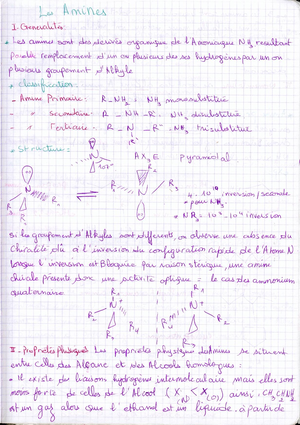 Les Amines
I. Generalités:
• Les amines sont des derivés organique de l'Ammoniaque NH3 resultant
par le remplacement d'un ou plusieurs de ses hydrogènes par un ou
plusieurs groupement d'Alkyle
• Classification:
- Amine Primaire: R-NH2 : NH3 monosubstitué
- " Secondaire: R-NH-R' : NH3 disubstitué
- " Tertiaire: R-N-R'' : NH3 trisubstitué
R'
• Structure: AX3E pyramidal
N
107°
R1
R2
R3
N
R1
R2
R3
inversion/seconde
pour NH3
NR3 inversion
Si les groupement d'Alkyles sont différents, on observe une absence du
Chiralité dû à l'inversion du configuration rapide de l'Atome N
lorsque l'inversion est Bloquée par raison stérique, une amine
chirale présente donc une activité optique: le cas des ammonium
quaternaire.
R1
N+
R2
R3
R4
R1
N+
R2
R3
R4
II - Proprietés physiques: Les proprietés physique des Amines se situent
entre celles des Alcane et des Alcools homologues:
• Il existe des liaisons hydrogène intermoleculaire mais elles sont
moins forte de celles de l'Alcool (X(N) < X(O)) ainsi, CH3CH2NH2
est un gaz alors que l'ethanol est un liquide. à partir de